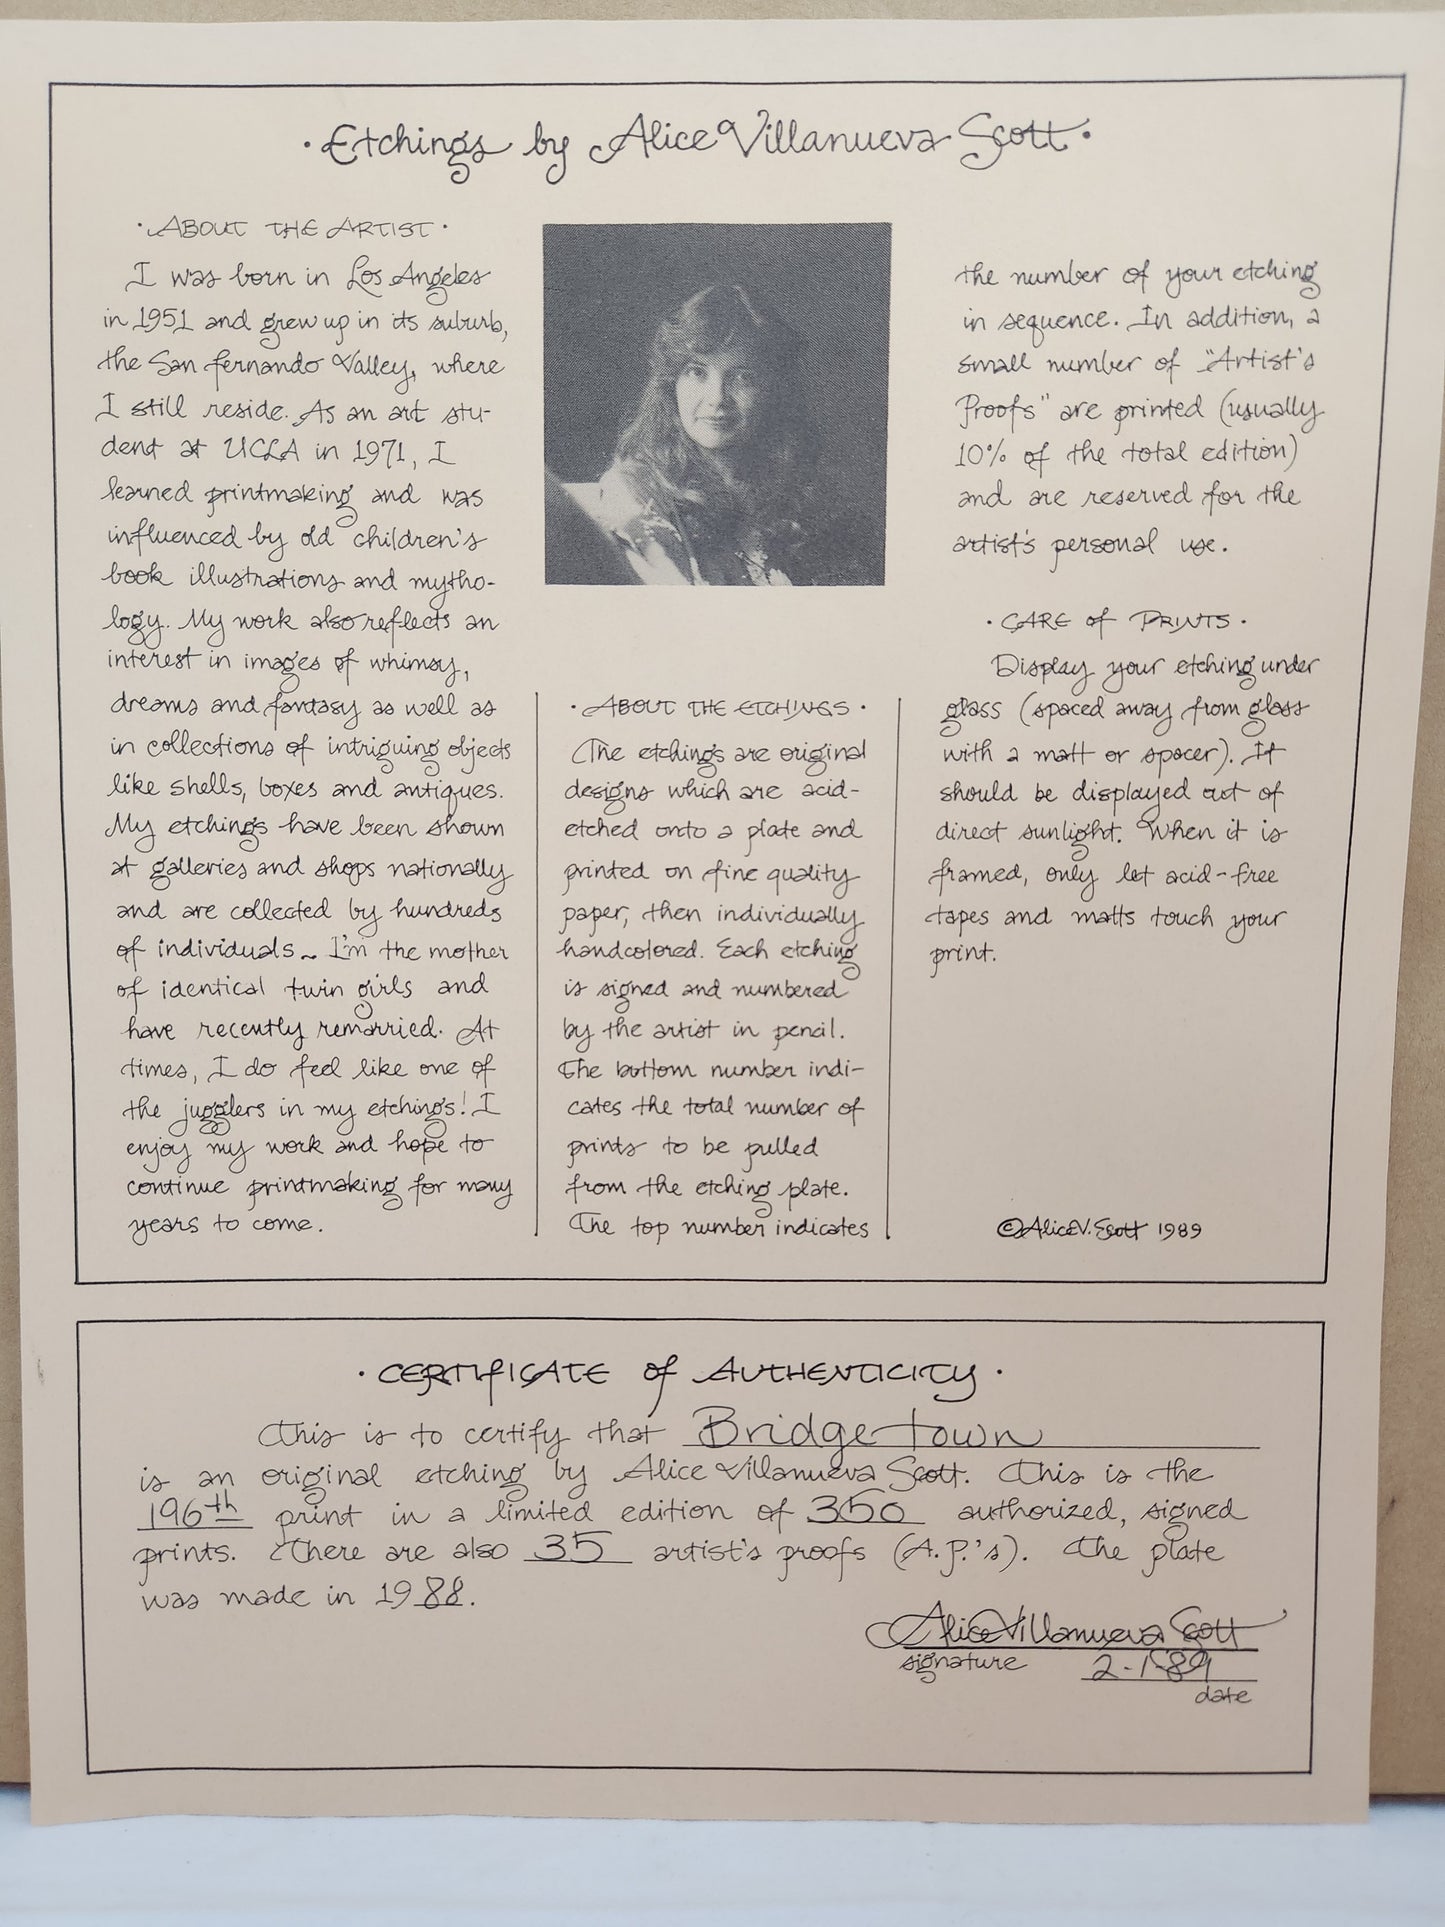 · Etchings by Alice Villanueva Scott ·
· ABOUT THE ARTIST ·
I was born in Los Angeles
in 1951 and grew up in its suburb,
the San fernando Valley, where
I still reside. As an art stu-
dent at UCLA in 1971, I
learned printmaking and was
influenced by old children's
book illustrations and mytho-
logy. My work also reflects an
interest in images of whimsy,
dreams and fantasy as well as
in collections of intriguing objects
like shells, boxes and antiques.
My etchings have been shown
at galleries and shops nationally
and are collected by hundreds
of individuals ~ I'm the mother
of identical twin girls and
have recently remarried. At
times, I do feel like one of
the jugglers in my etchings! I
enjoy my work and hope to
continue printmaking for many
years to come.
· ABOUT THE ETCHINGS ·
The etchings are original
designs which are acid-
etched onto a plate and
printed on fine quality
paper, then individually
handcolored. Each etching
is signed and numbered
by the artist in pencil.
The bottom number indi-
cates the total number of
prints to be pulled
from the etching plate.
The top number indicates
the number of your etching
in sequence. In addition, a
small number of "Artist's
Proofs" are printed (usually
10% of the total edition)
and are reserved for the
artist's personal use.
· CARE of PRINTS ·
Display your etching under
glass (spaced away from glass
with a matt or spacer). It
should be displayed out of
direct sunlight. When it is
framed, only let acid-free
tapes and matts touch your
print.
© Alice V. Scott 1989
· CERTIFICATE of AUTHENTICITY ·
This is to certify that Bridgetown
is an original etching by Alice Villanueva Scott. This is the
196th print in a limited edition of 350 authorized, signed
prints. There are also 35 artist's proofs (A.P.'s). The plate
was made in 1988.
Alice Villanueva Scott
signature 2-1-89
date